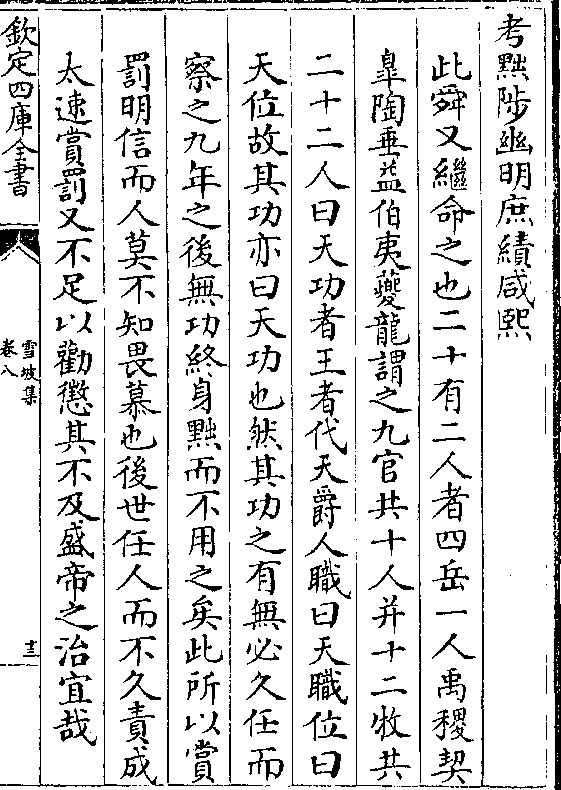 考黜陟幽明庶績咸熙
此舜又繼命之也二十有二人者四岳一人禹稷契
臯陶垂益伯夷夔龍謂之九官共十人并十二牧共
二十二人曰天功者王者代天爵人職曰天職位曰
天位故其功亦曰天功也然其功之有無必久任而
察之九年之後無功終身黜而不用之矣此所以賞
罰明信而人莫不知畏慕也後世任人而不久責成
太速賞罰又不足以勸懲其不及盛帝之治宜哉
欽定四庫全書
雪坡集
卷八
十三